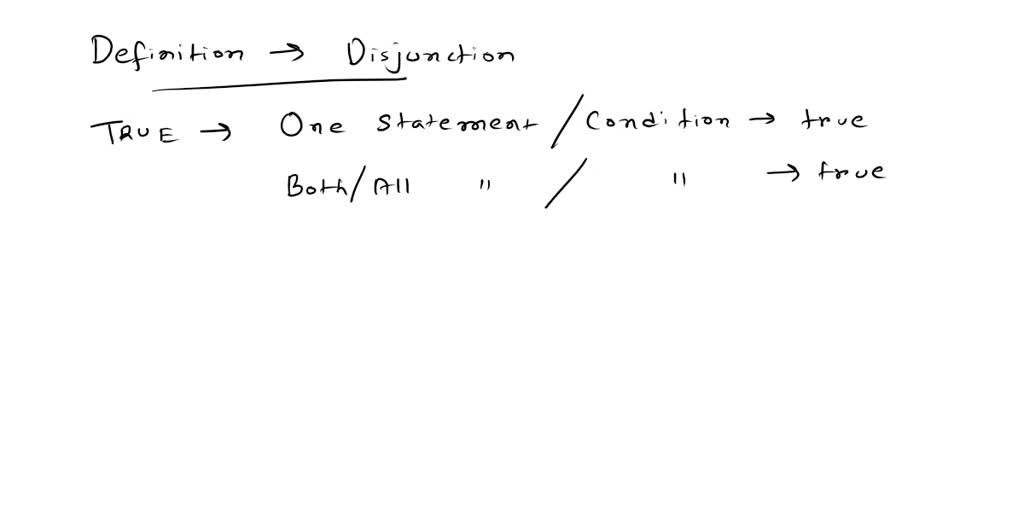 Definition → Disjunction
TRUE → One statement / Condition → true
Both/All " / " → true